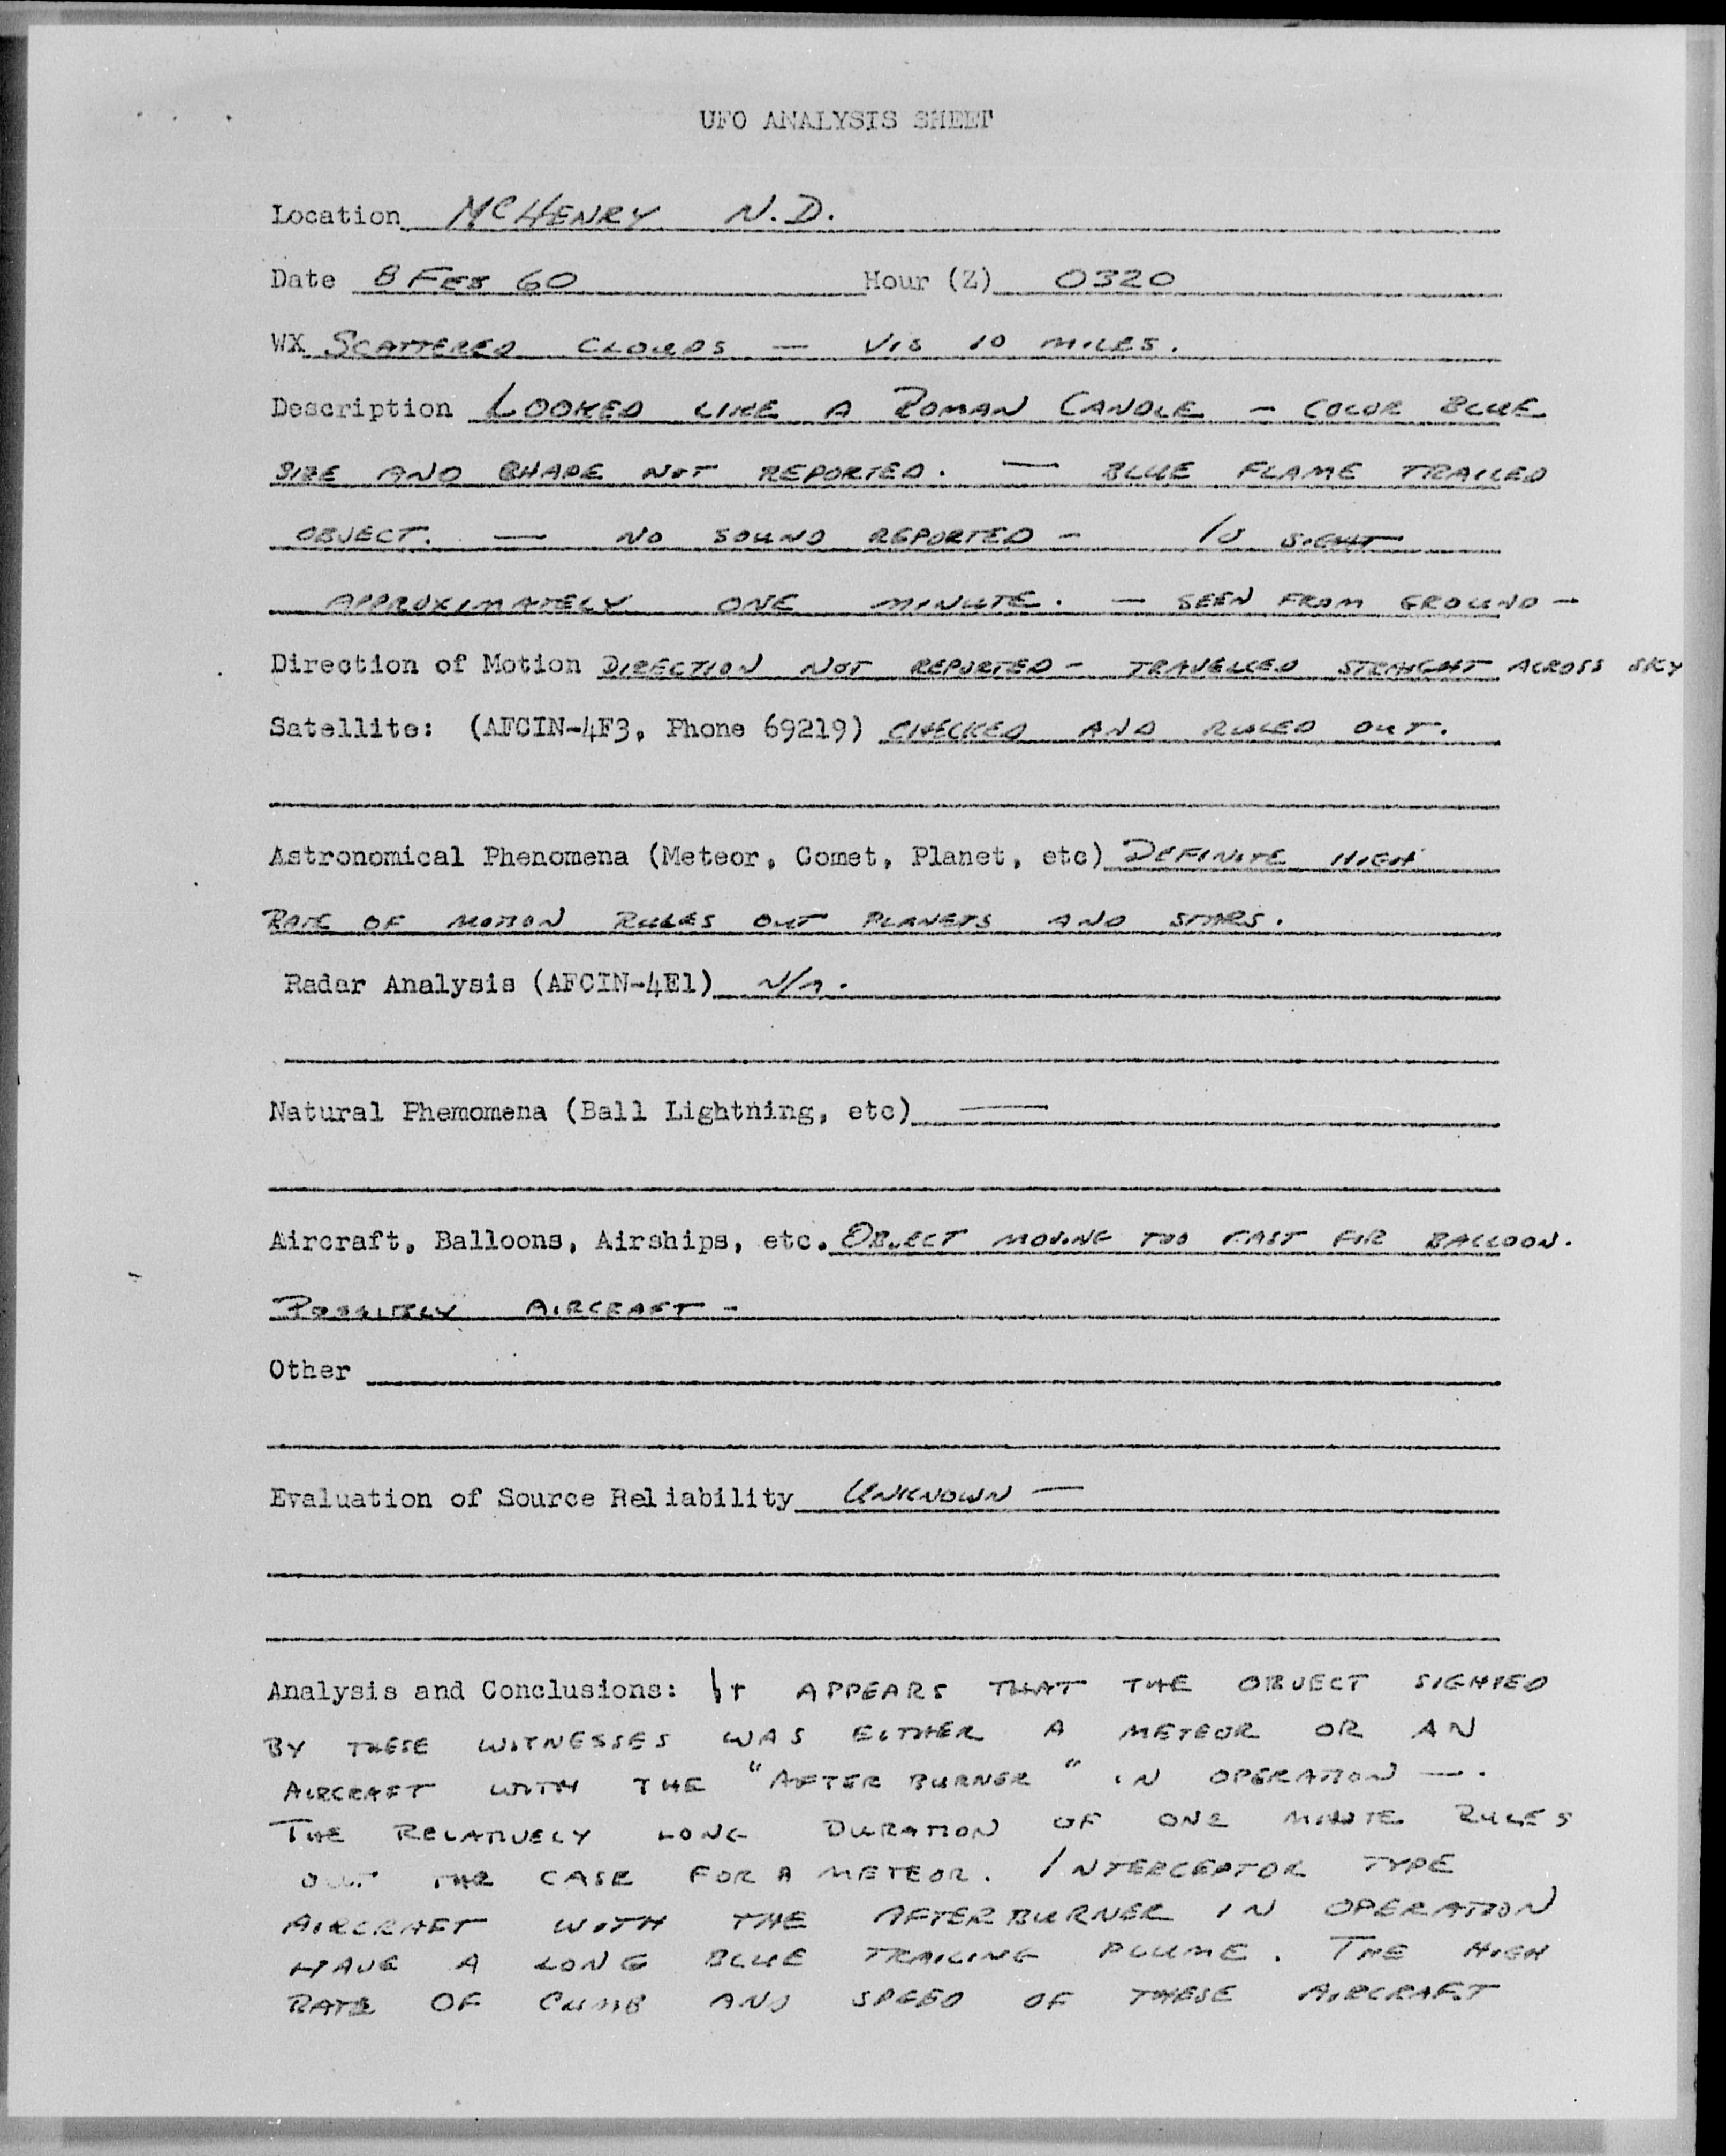 UFO ANALYSIS SHEET
Location McHENRY N.D.
Date 8 FEB 60 Hour (Z) 0320
WX SCATTERED CLOUDS — VIS 10 MILES.
Description LOOKED LIKE A ROMAN CANDLE - COLOR BLUE
SIZE AND SHAPE NOT REPORTED. — BLUE FLAME TRAILED
OBJECT. — NO SOUND REPORTED - IN SIGHT
APPROXIMATELY ONE MINUTE. - SEEN FROM GROUND -
Direction of Motion DIRECTION NOT REPORTED - TRAVELLED STRAIGHT ACROSS SKY
Satellite: (AFCIN-4F3, Phone 69219) CHECKED AND RULED OUT.
Astronomical Phenomena (Meteor, Comet, Planet, etc) DEFINITE HIGH
RATE OF MOTION RULES OUT PLANETS AND STARS.
Radar Analysis (AFCIN-4E1) N/A.
Natural Phemomena (Ball Lightning, etc) —
Aircraft, Balloons, Airships, etc. OBJECT MOVING TOO FAST FOR BALLOON.
AIRCRAFT -
Other
Evaluation of Source Reliability UNKNOWN —
Analysis and Conclusions: IT APPEARS THAT THE OBJECT SIGHTED
BY THESE WITNESSES WAS EITHER A METEOR OR AN
AIRCRAFT WITH THE "AFTER BURNER" IN OPERATION —.
THE RELATIVELY LONG DURATION OF ONE MINUTE RULES
OUT THE CASE FOR A METEOR. INTERCEPTOR TYPE
AIRCRAFT WITH THE AFTERBURNER IN OPERATION
HAVE A LONG BLUE TRAILING PLUME. THE HIGH
RATE OF CLIMB AND SPEED OF THESE AIRCRAFT